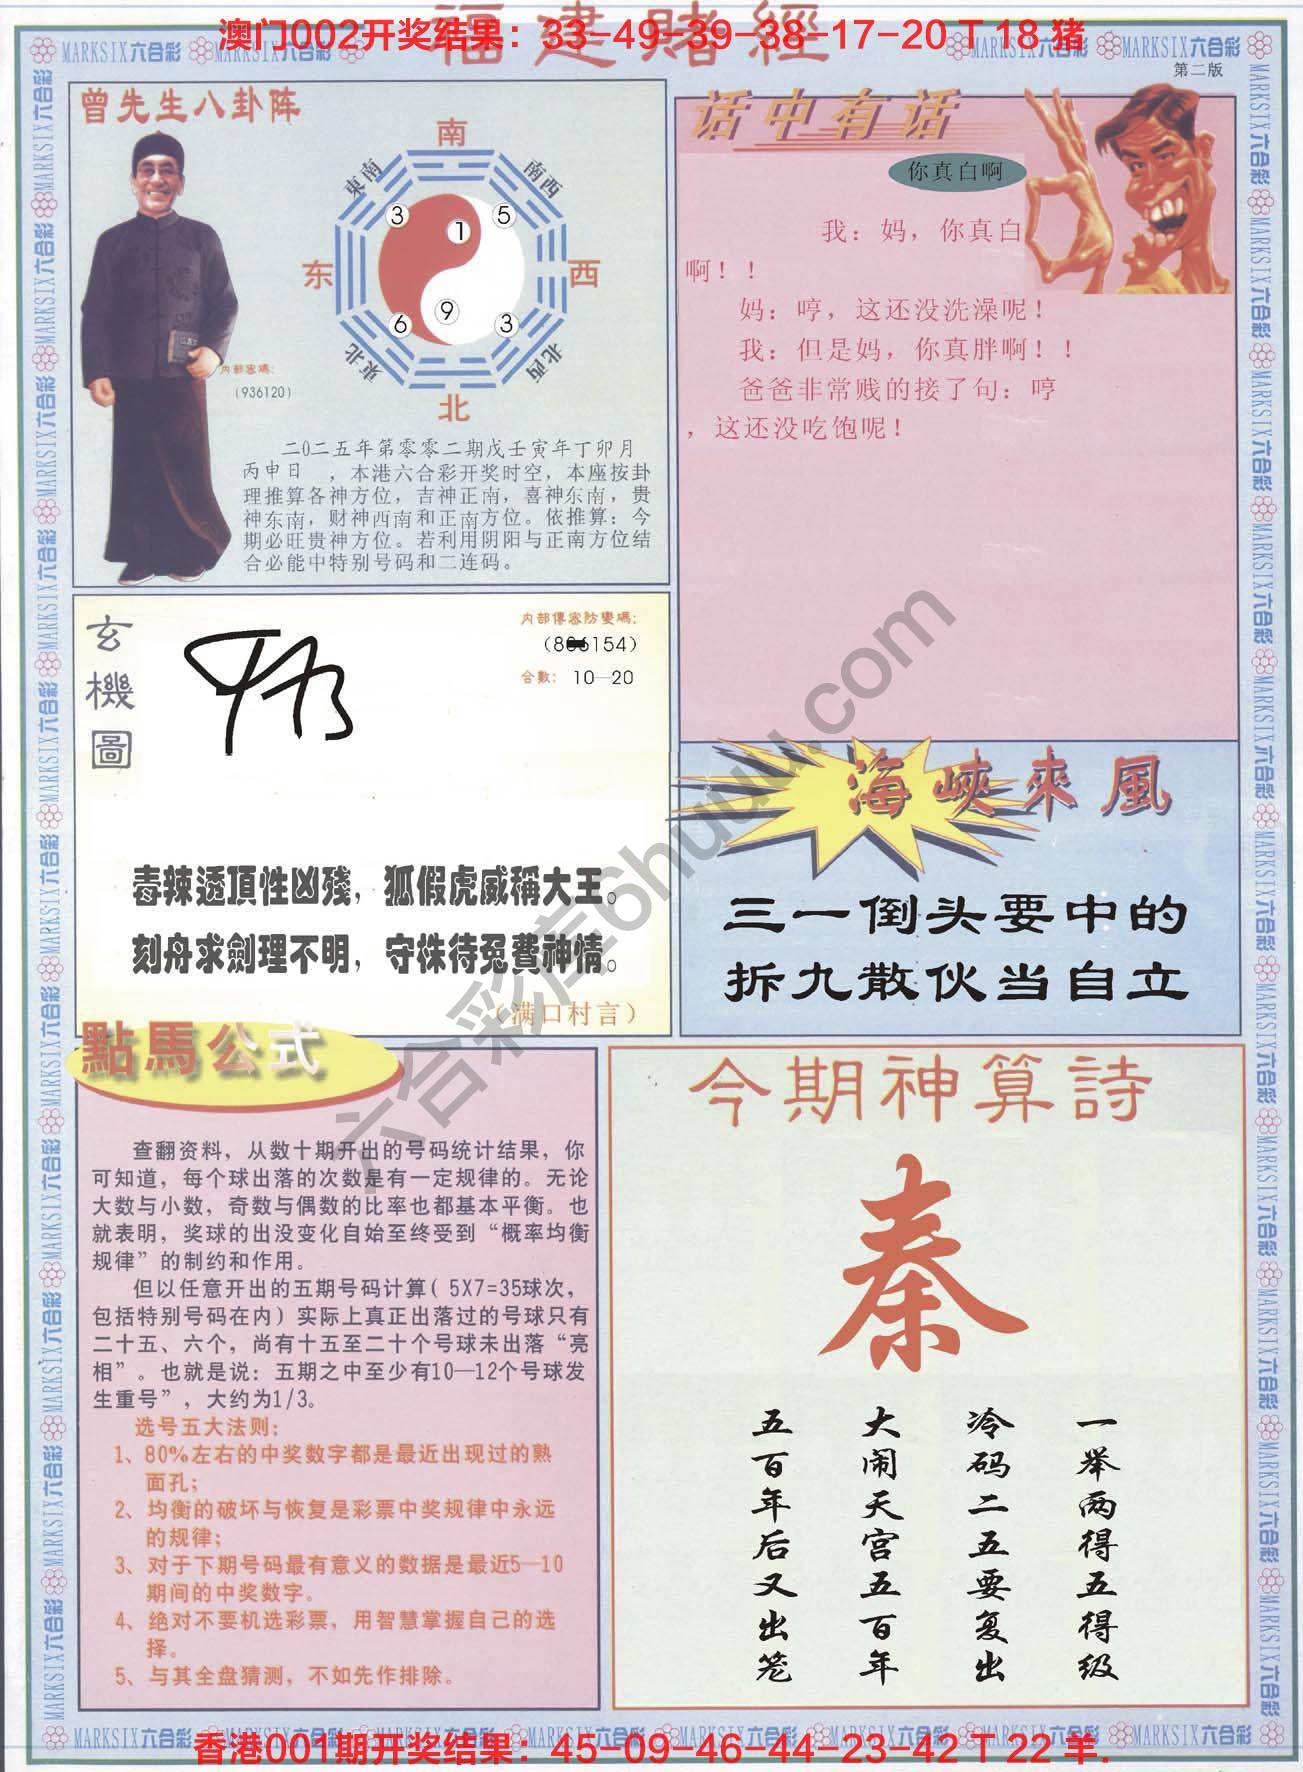 福建赌經
澳门002开奖结果：33-49-39-38-17-20 T 18 猪
MARKSIX六合彩
第二版
曾先生八卦阵
南
東南
南西
3
1
5
东
西
6
9
3
東北
北西
北
内部密碼：
(936120)
二0二五年第零零二期戊壬寅年丁卯月
丙申日 ，本港六合彩开奖时空，本座按卦
理推算各神方位，吉神正南，喜神东南，贵
神东南，财神西南和正南方位。依推算：今
期必旺贵神方位。若利用阴阳与正南方位结
合必能中特别号码和二连码。
话中有话
你真白啊
我：妈，你真白
啊！！
妈：哼，这还没洗澡呢！
我：但是妈，你真胖啊！！
爸爸非常贱的接了句：哼
，这还没吃饱呢！
玄機圖
内部傳密防變碼：
合數： 10—20
毒辣透頂性凶殘，狐假虎威稱大王。
刻舟求劍理不明，守株待兔費神情。
（满口村言）
海峽來風
三一倒头要中的
拆九散伙当自立
點馬公式
查翻资料，从数十期开出的号码统计结果，你
可知道，每个球出落的次数是有一定规律的。无论
大数与小数，奇数与偶数的比率也都基本平衡。也
就表明，奖球的出没变化自始至终受到“概率均衡
规律”的制约和作用。
但以任意开出的五期号码计算（5X7=35球次，
包括特别号码在内）实际上真正出落过的号球只有
二十五、六个，尚有十五至二十个号球未出落“亮
相”。也就是说：五期之中至少有10—12个号球发
生重号”，大约为1/3。
选号五大法则：
1、80%左右的中奖数字都是最近出现过的熟
面孔；
2、均衡的破坏与恢复是彩票中奖规律中永远
的规律；
3、对于下期号码最有意义的数据是最近5—10
期间的中奖数字。
4、绝对不要机选彩票，用智慧掌握自己的选
择。
5、与其全盘猜测，不如先作排除。
今期神算詩
秦
一举两得五得级
冷码二五要复出
大闹天宫五百年
五百年后又出笼
六合彩库6huuu.com
香港001期开奖结果：45-09-46-44-23-42 T 22 羊.